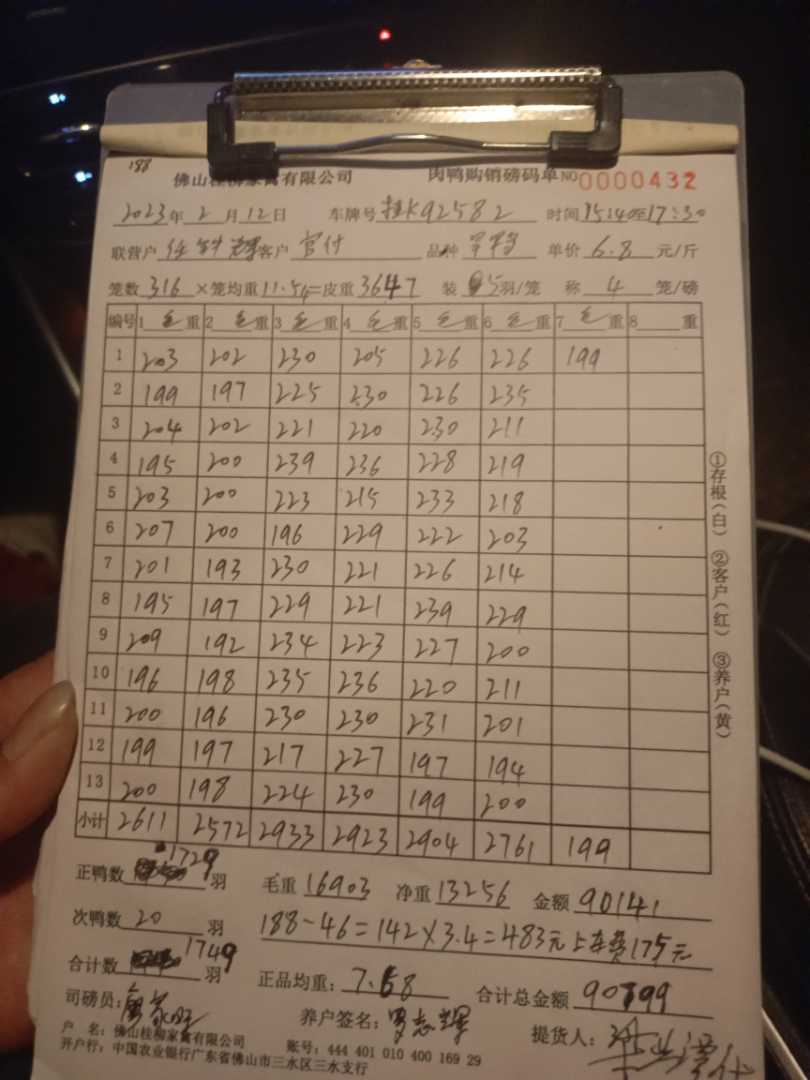 188
佛山桂柳家禽有限公司 肉鸭购销磅码单 NO 0000432
2023年2月12日 车牌号 桂K92582 时间 15:40至17:30
联营户 客户 官付 品种 单价 6.8 元/斤
笼数 316 ×笼均重 11.54 =皮重 3647 装 5羽/笼 称 4 笼/磅
编号 1 毛重 2 毛重 3 毛重 4 毛重 5 毛重 6 毛重 7 毛重 8 重
1 203 202 230 205 226 226 199
2 199 197 225 230 226 235
3 204 202 221 220 230 211
4 195 200 239 236 228 219
5 203 200 223 215 233 218
6 207 200 196 229 222 203
7 201 193 230 221 226 214
8 195 197 229 221 239 229
9 209 192 234 223 227 200
10 196 198 235 236 220 211
11 200 196 230 230 231 201
12 199 197 217 227 197 194
13 200 198 224 230 199 200
小计 2611 2572 2933 2923 2904 2761 199
①存根(白) ②客户(红) ③养户(黄)
正鸭数 1729 羽 毛重 16903 净重 13256 金额 90141
次鸭数 20 羽 188-46=142×3.4=483元 上车费175元
合计数 1749 羽 正品均重: 7.68 合计总金额 90799
司磅员: 养户签名: 罗志辉 提货人:
户 名: 佛山桂柳家禽有限公司 账号: 444 401 010 400 169 29
开户行: 中国农业银行广东省佛山市三水区三水支行